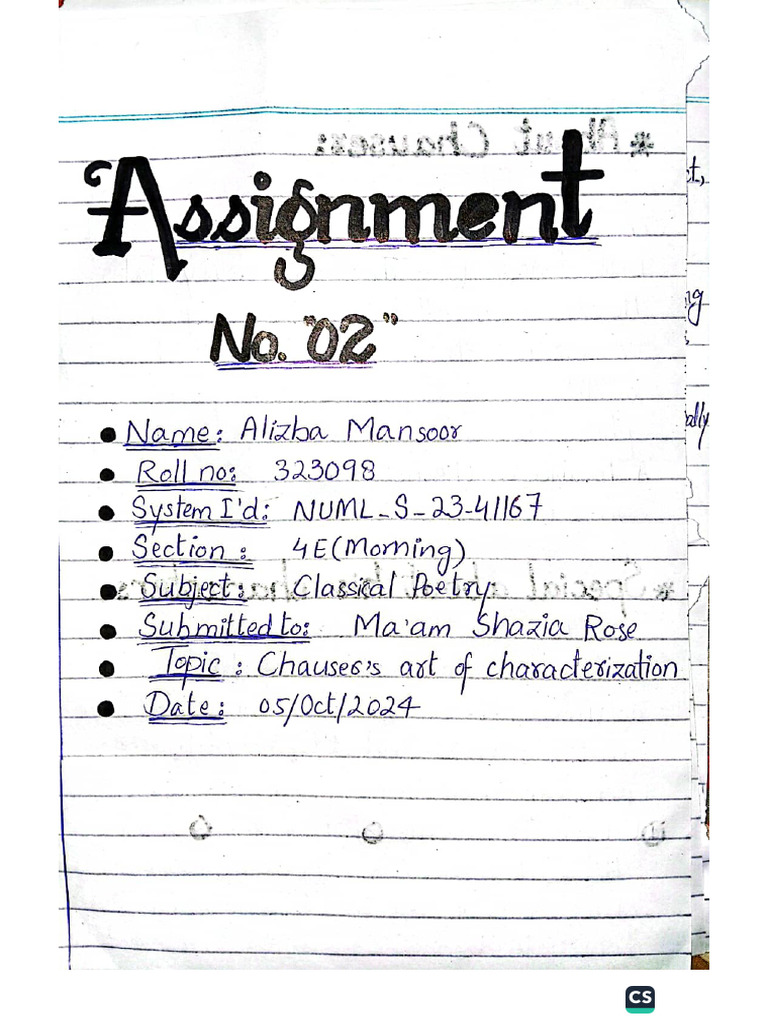 Assignment
No. "02"
• Name: Alizba Mansoor
• Roll no: 323098
• System I'd: NUML-S-23-41167
• Section: 4E(Morning)
• Subject: Classical Poetry
• Submitted to: Ma'am Shazia Rose
• Topic: Chauser's art of characterization
• Date: 05/Oct/2024
CS